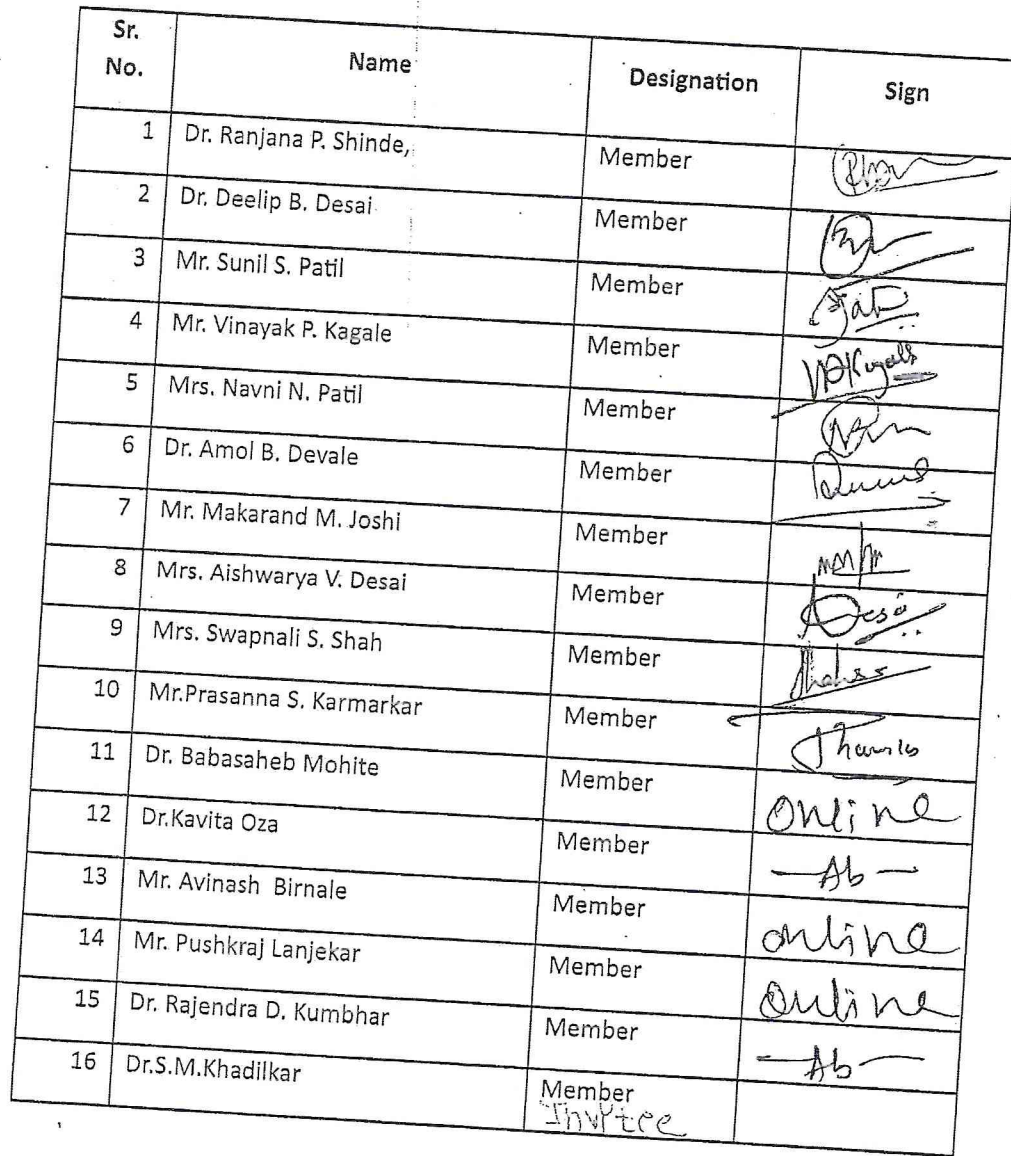 Sr. No. Name Designation Sign
1 Dr. Ranjana P. Shinde, Member
2 Dr. Deelip B. Desai Member
3 Mr. Sunil S. Patil Member
4 Mr. Vinayak P. Kagale Member VPKagale
5 Mrs. Navni N. Patil Member
6 Dr. Amol B. Devale Member
7 Mr. Makarand M. Joshi Member
8 Mrs. Aishwarya V. Desai Member
9 Mrs. Swapnali S. Shah Member
10 Mr.Prasanna S. Karmarkar Member
11 Dr. Babasaheb Mohite Member Online
12 Dr.Kavita Oza Member —Ab—
13 Mr. Avinash Birnale Member online
14 Mr. Pushkraj Lanjekar Member Online
15 Dr. Rajendra D. Kumbhar Member —Ab—
16 Dr.S.M.Khadilkar Member
Invitee